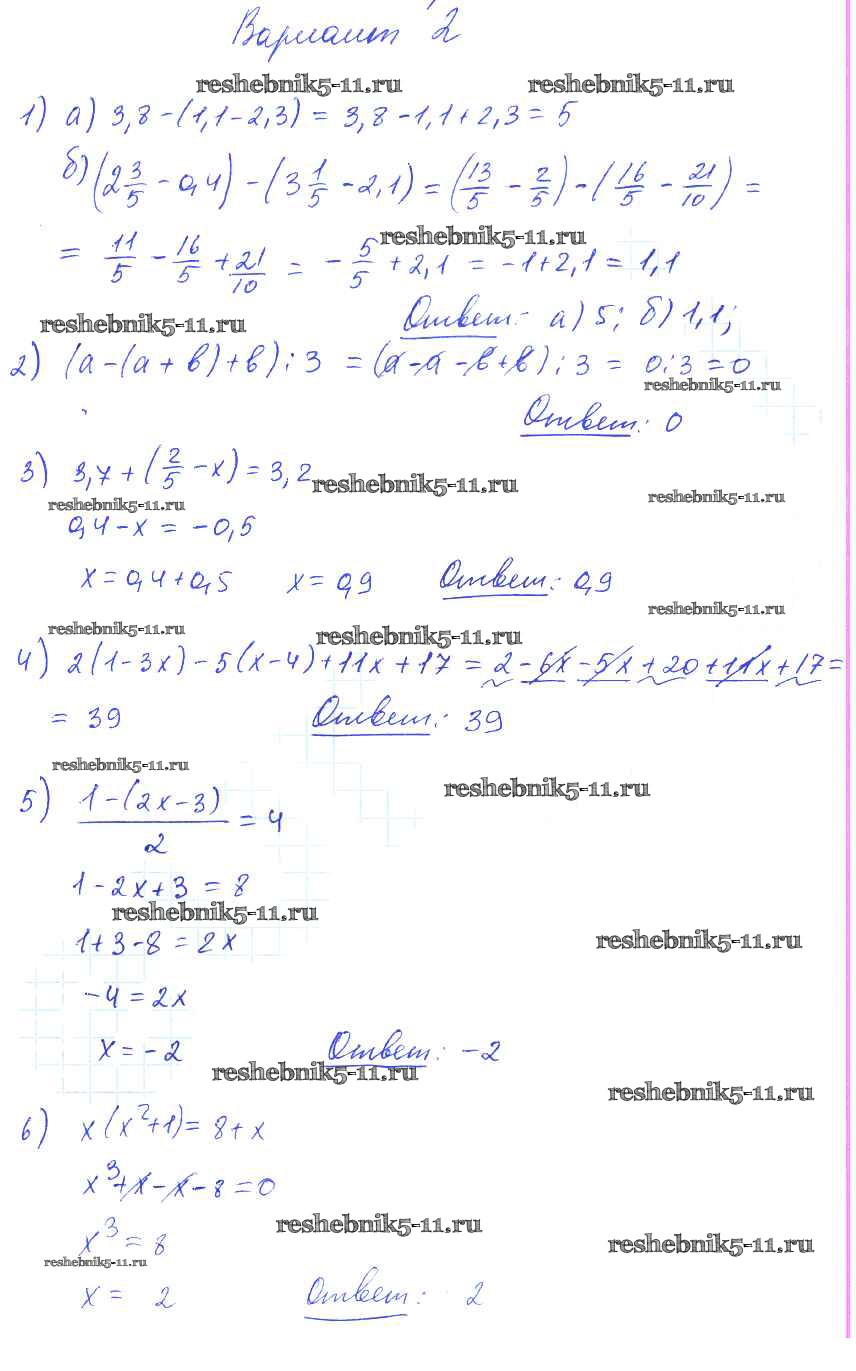 Вариант 2
reshebnik5-11.ru reshebnik5-11.ru
1) а) 3,8-(1,1-2,3) = 3,8-1,1+2,3 = 5
б) (2 3/5 - 0,4) - (3 1/5 - 2,1) = (13/5 - 2/5) - (16/5 - 21/10) =
reshebnik5-11.ru
= 11/5 - 16/5 + 21/10 = - 5/5 + 2,1 = -1+2,1 = 1,1
reshebnik5-11.ru Ответ: а) 5; б) 1,1;
2) (a-(a+b)+b):3 = (a-a-b+b):3 = 0:3=0
reshebnik5-11.ru
Ответ: 0
3) 3,7+(2/5 -x)=3,2
reshebnik5-11.ru
reshebnik5-11.ru reshebnik5-11.ru
0,4-x = -0,5
x=0,4+0,5 x=0,9 Ответ: 0,9
reshebnik5-11.ru
reshebnik5-11.ru reshebnik5-11.ru
4) 2(1-3x)-5(x-4)+11x+17 = 2-6x-5x+20+11x+17=
= 39 Ответ: 39
reshebnik5-11.ru
reshebnik5-11.ru
5) 1-(2x-3)/2 = 4
1-2x+3 = 8
reshebnik5-11.ru
1+3-8 = 2x reshebnik5-11.ru
-4=2x
x=-2 Ответ: -2
reshebnik5-11.ru
reshebnik5-11.ru
6) x(x²+1)= 8+x
x³+x-x-8=0
reshebnik5-11.ru
x³=8 reshebnik5-11.ru
reshebnik5-11.ru
x= 2 Ответ: 2